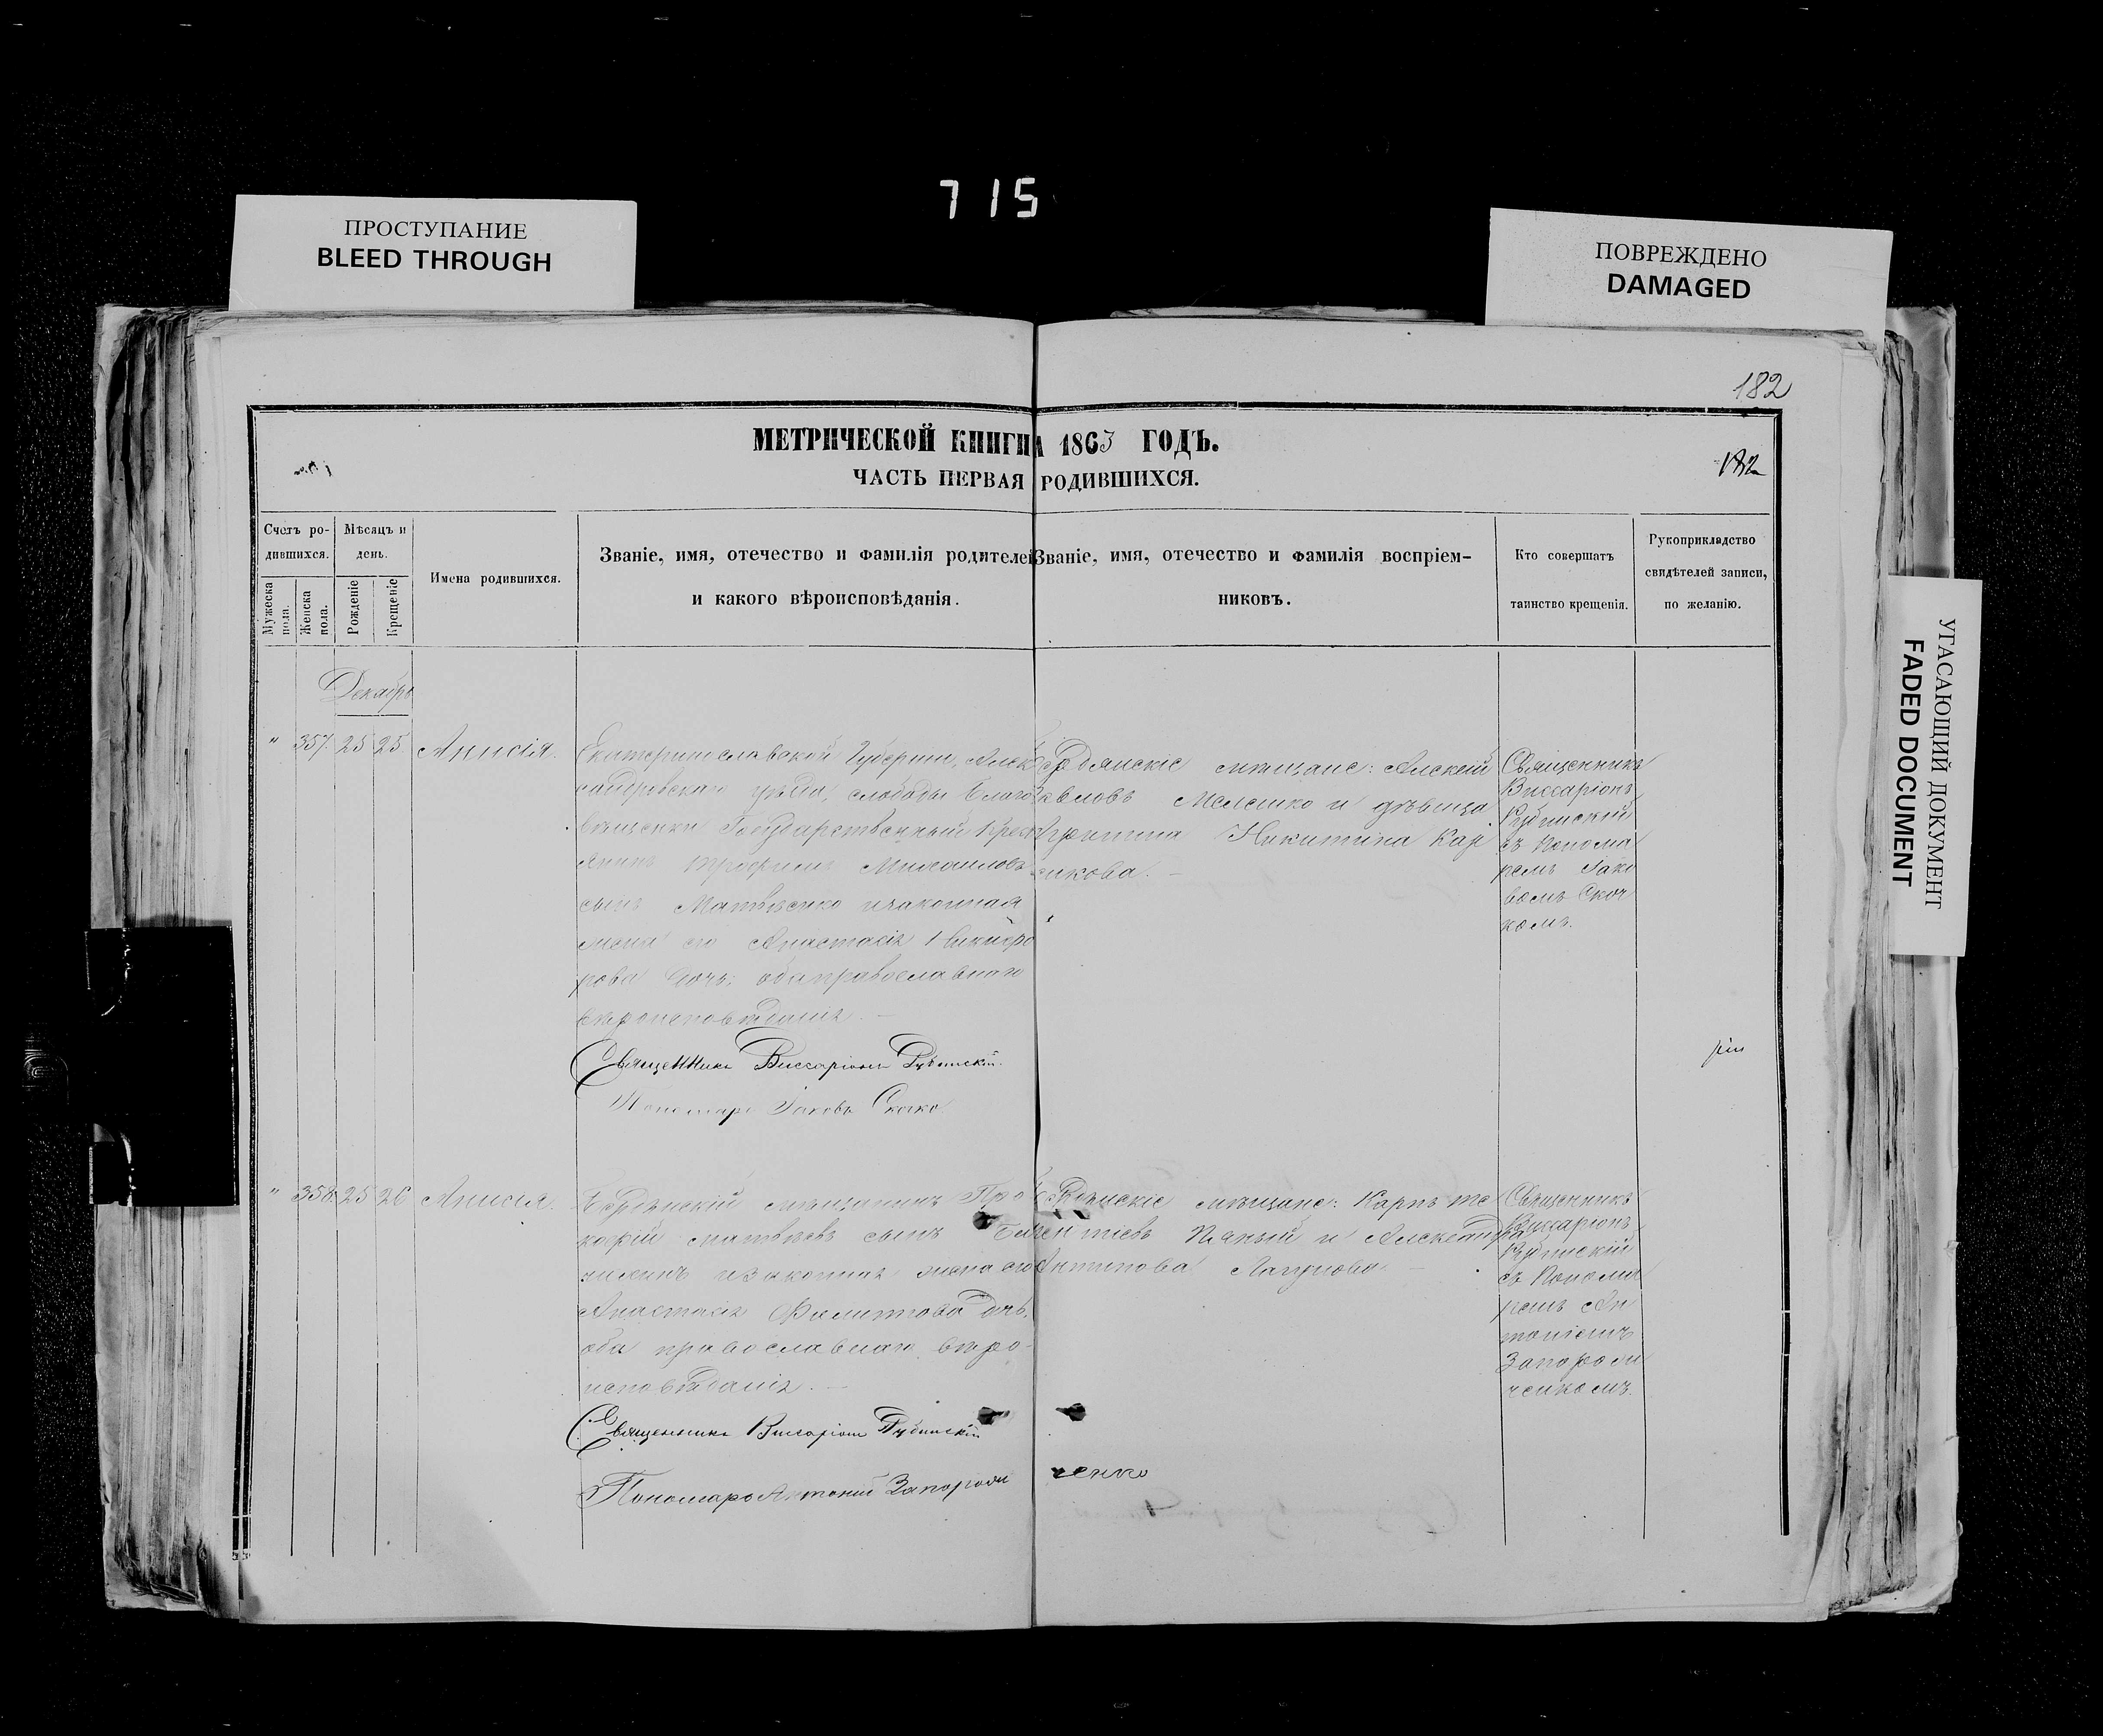 715
ПРОСТУПАНИЕ
BLEED THROUGH
ПОВРЕЖДЕНО
DAMAGED
УГАСАЮЩИЙ ДОКУМЕНТ
FADED DOCUMENT
182
МЕТРИЧЕСКОЙ КНИГИ НА 1863 ГОДЪ.
182
ЧАСТЬ ПЕРВАЯ РОДИВШИХСЯ.
Счетъ ро-
дившихся.
Мужеска
пола.
Женска
пола.
Мѣсяцъ и
день.
Рожденіе
Крещеніе
Имена родившихся.
Званіе, имя, отечество и фамилія родителей
и какого вѣроисповѣданія.
Званіе, имя, отечество и фамилія воспріем-
никовъ.
Кто совершатъ
таинство крещенія.
Рукоприкладство
свидѣтелей записи,
по желанію.
Декабрь
" 357. 25 25 Анисія.
Екатеринославской Губерніи, Алек
сандровскаго уѣзда, слободы Благо
вѣщенки Государственный Крест
янинъ Трофимъ Михаиловъ
сынъ Матвѣенко и законная
жена его Анастасія
рова дочь, оба православнаго
вѣроисповѣданія. —
Священникъ Виссаріонъ Рубинскій.
Пономарь Іаковъ Скочко
Бердянскіе мѣщане: Алексѣй
Павловъ Мелешко и дѣвица
Никитина Кар
Священникъ
Виссаріонъ
Рубинскій
съ Понома
ремъ Іако
вомъ Скоч
комъ.
" 358. 25 26 Анисія.
Бердянскій мѣщанинъ Про
кофій Матвѣевъ сынъ
и законная жена его
Анастасія Филиппова дочь,
оба православнаго вѣро-
исповѣданія. —
Священникъ Виссаріонъ Рубинскій
Пономарь Антоній Запорожченко
Бердянскіе мѣщане: Карпъ Те
рентіевъ и Александра
Антипова —
Священникъ
Виссаріонъ
Рубинскій
съ Понома
ремъ Ан
тоніемъ
Запорож
ченкомъ.